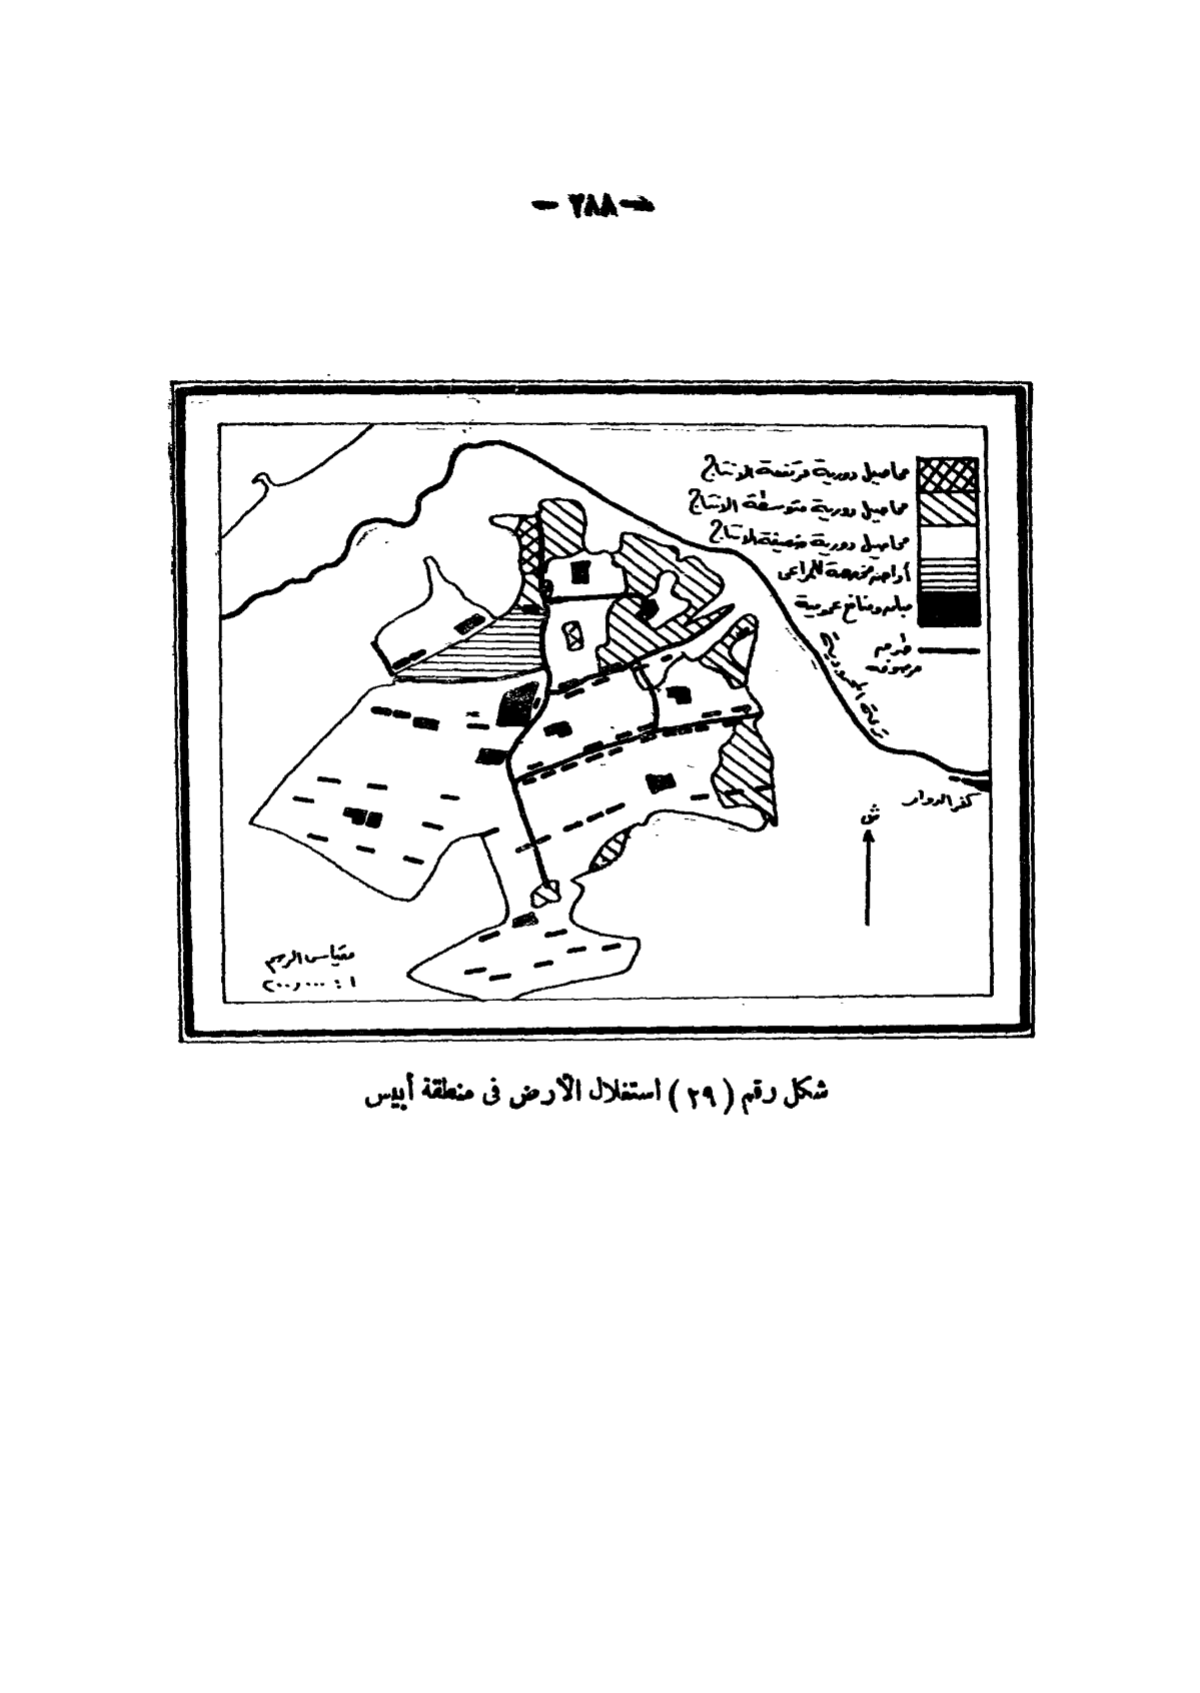 - ٢٨٨ -
محاصيل دورية مرتفعة الانتاج
محاصيل دورية متوسطة الانتاج
محاصيل دورية ضعيفة الانتاج
أراضى مخصصة للمراعى
مبانى ومنافع عمومية
طرق
مرصوفه
ترعة المحمودية
كفر الدوار
ش
مقياس الرسم
١ : ٢٠٠٠٠٠
شكل رقم ( ٢٩ ) استغلال الأرض فى منطقة أبيس